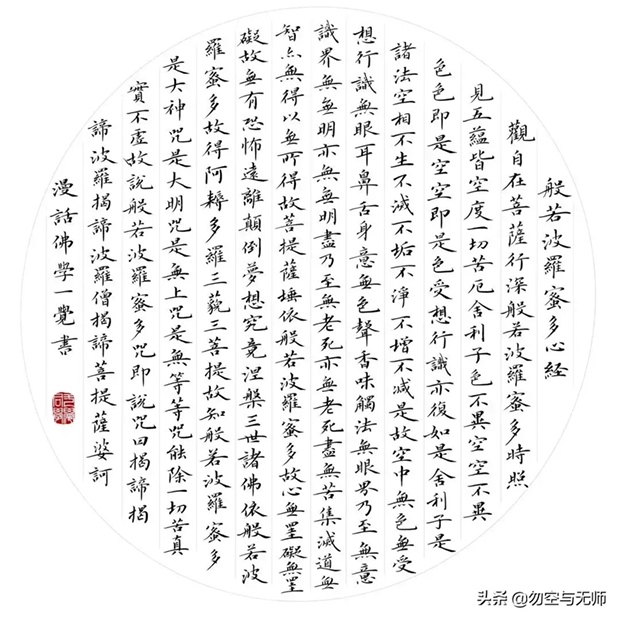 般若波羅蜜多心経
觀自在菩薩行深般若波羅蜜多時照
見五蘊皆空度一切苦厄舍利子色不異空空不異
色色即是空空即是色受想行識亦復如是舍利子是
諸法空相不生不滅不垢不淨不增不減是故空中無色無受
想行識無眼耳鼻舌身意無色聲香味觸法無眼界乃至無意
識界無無明亦無無明盡乃至無老死亦無老死盡無苦集滅道無
智亦無得以無所得故菩提薩埵依般若波羅蜜多故心無罣礙無罣
礙故無有恐怖遠離顛倒夢想究竟涅槃三世諸佛依般若波
羅蜜多故得阿耨多羅三藐三菩提故知般若波羅蜜多
是大神咒是大明咒是無上咒是無等等咒能除一切苦真
實不虛故說般若波羅蜜多咒即說咒曰揭諦揭
諦波羅揭諦波羅僧揭諦菩提薩婆訶
漫話佛學一覺書
头条 @勿空与无师